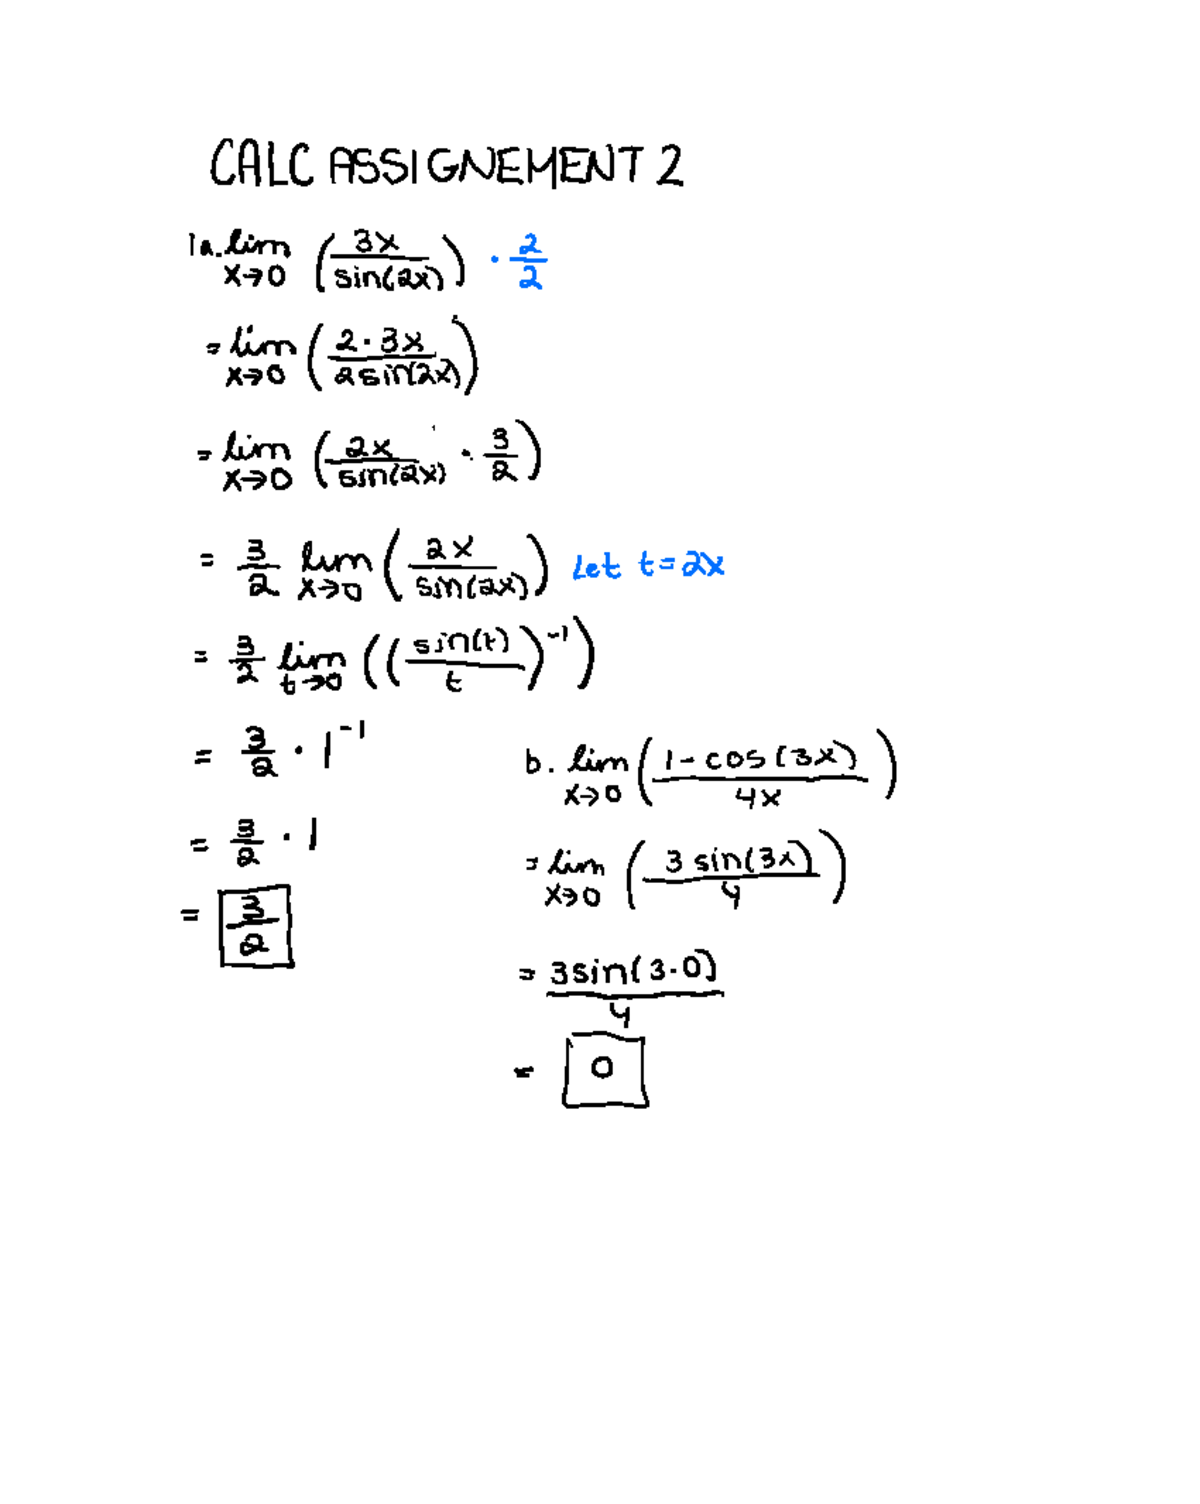 CALC ASSIGNEMENT 2
1a. lim x→0 (3x / sin(2x)) · 2/2
= lim x→0 (2·3x / 2sin(2x))
= lim x→0 (2x / sin(2x) · 3/2)
= 3/2 lim x→0 (2x / sin(2x)) Let t=2x
= 3/2 lim t→0 ((sin(t) / t)^-1)
= 3/2 · 1^-1
= 3/2 · 1
= 3/2
b. lim x→0 (1-cos(3x) / 4x)
= lim x→0 (3 sin(3x) / 4)
= 3sin(3·0) / 4
= 0